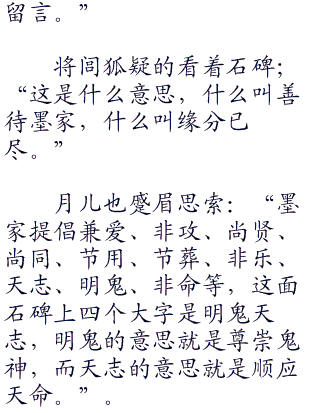 留言。”
将闾狐疑的看着石碑；
“这是什么意思，什么叫善
待墨家，什么叫缘分已
尽。”
月儿也蹙眉思索：“墨
家提倡兼爱、非攻、尚贤、
尚同、节用、节葬、非乐、
天志、明鬼、非命等，这面
石碑上四个大字是明鬼天
志，明鬼的意思就是尊崇鬼
神，而天志的意思就是顺应
天命。”。